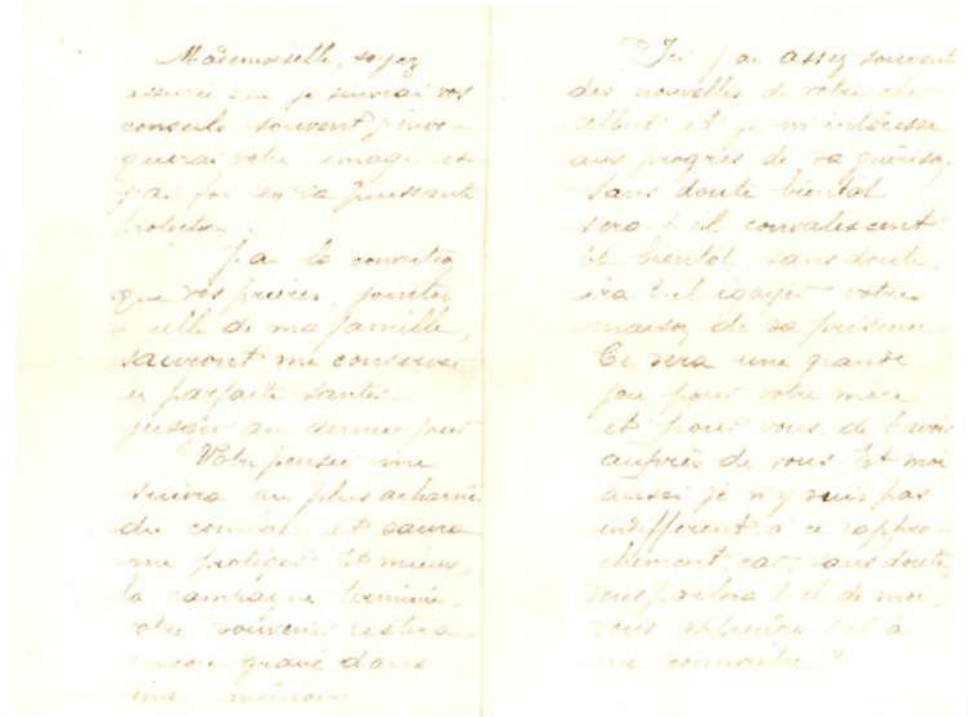 Mademoiselle, soyez
assurée que je suivrai vos
conseils souvent j'invo-
querai votre image et
j'ai foi en sa puissante
protection.
J'ai la conviction
que vos prières, jointes
à celle de ma famille,
sauront me conserver
en parfaite santé
jusqu'au dernier jour
Votre pensée me
suivra au plus acharné
du combat et saura
me protéger Et mieux,
la campagne terminée,
votre souvenir restera
encore gravé dans
ma mémoire
Ici j'ai assez souvent
des nouvelles de votre cher
Albert et je m'intéresse
aux progrès de sa guérison.
Sans doute bientôt
sera t il convalescent
Et bientôt sans doute
ira t-il égayer votre
maison de sa présence
Ce sera une grande
joie pour votre mère
et pour vous de l'avoir
auprès de vous Et moi
aussi je n'y suis pas
indifférent à ce rappro-
chement car, sans doute,
vous parlera t il de moi
vous apprendra t-il à
me connaître